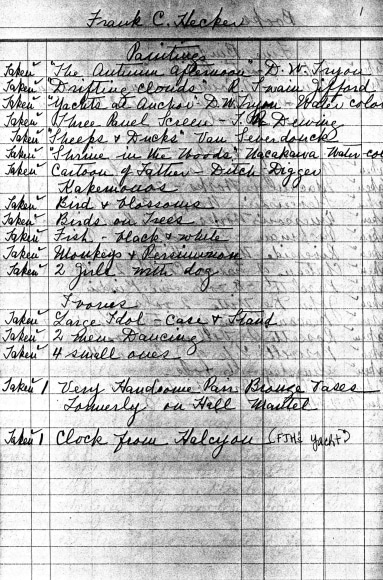 1
Frank C. Hecker
Paintings
Taken "The Autumn afternoon" - D. W. Tryon
Taken "Drifting Clouds" R. Swain Gifford
Taken "Yachts at Anchor D. W. Tryon - Water color
Taken "Three Panel Screen - T. W. Dewing
Taken "Sheeps & Ducks" Van Severdonck
Taken "Shrine in the Woods" Nacakawa Water-co
Taken Cartoon of Father - Ditch Digger
Kakemonos
Taken Bird & blossoms
Taken Birds on Trees
Taken Fish - black & white
Taken Monkeys & Persimmon
Taken 2 girls with dog
Ivories
Taken Large Idol - Case & Stand
Taken 2 men Dancing
Taken 4 small ones
Taken 1 Very Handsome Pair Bronze Vases
Formerly on Hall Mantel
Taken 1 Clock from Halcyon (FJH's yacht)